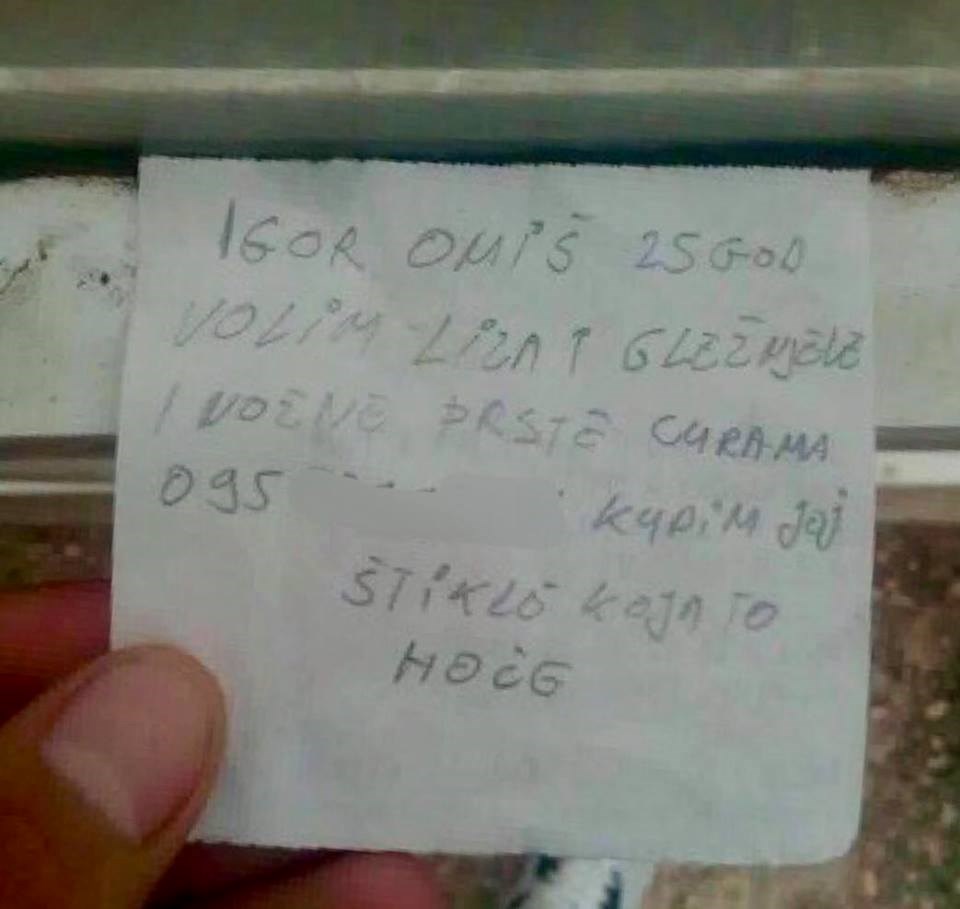 IGOR OMIŠ 25 GOD
VOLIM LIZATI GLEŽNJEVE
I NOŽNE PRSTE CURAMA
095 KUPIM joj
ŠTIKLE KOJA TO
HOĆE